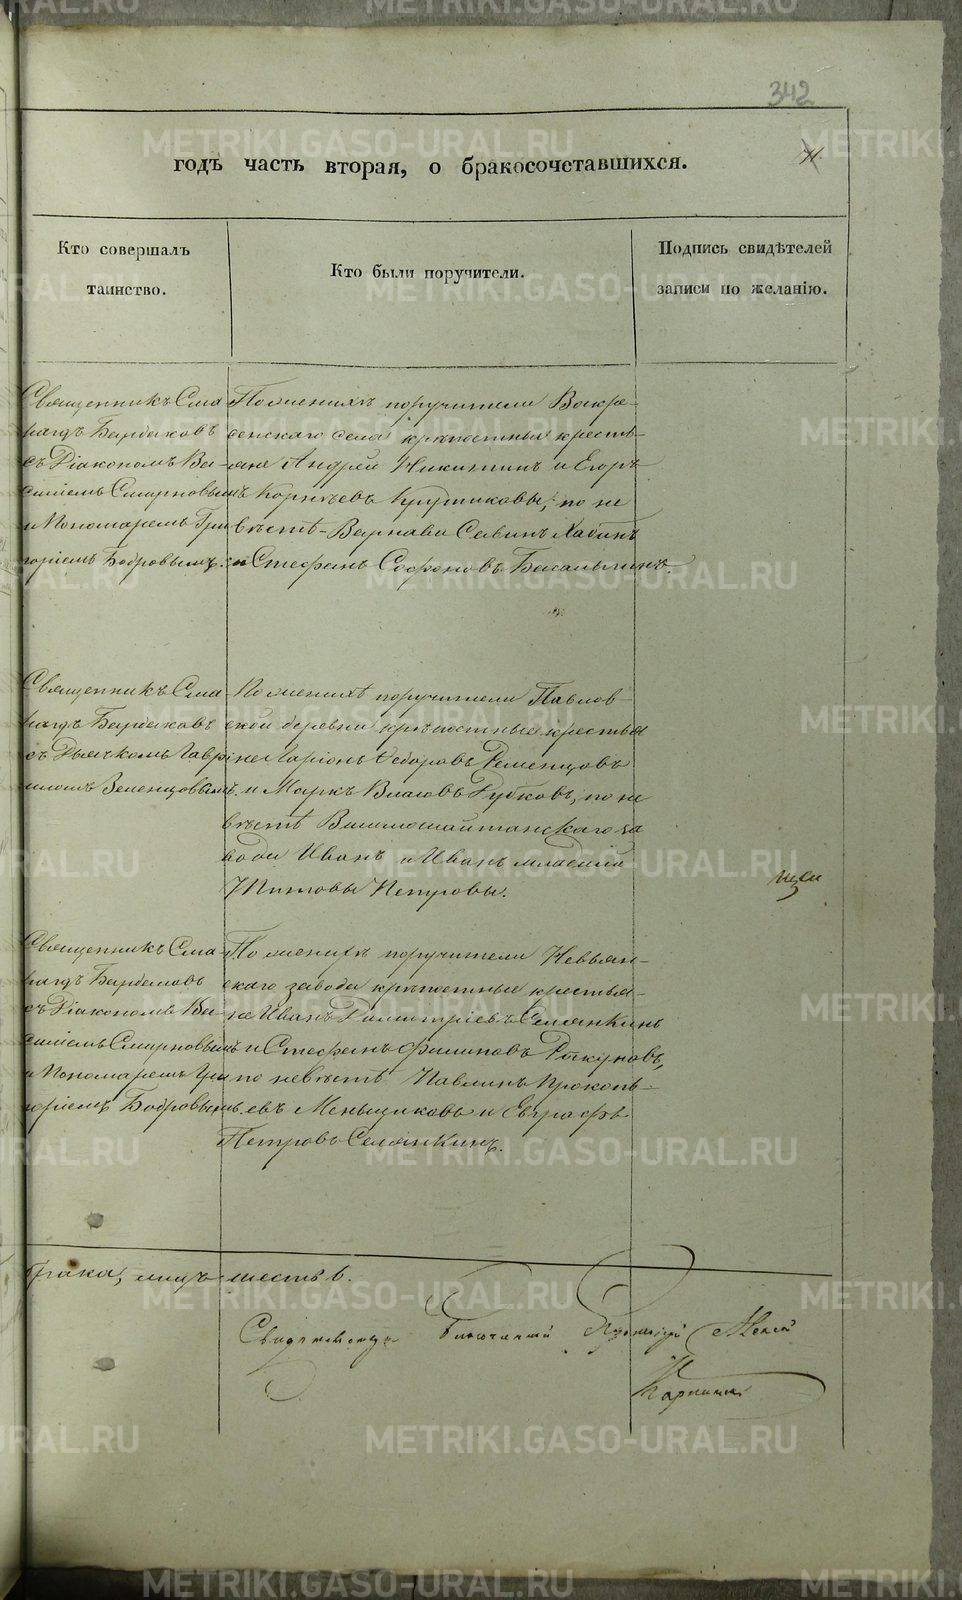 342
годъ часть вторая, о бракосочетавшихся.
Кто совершалъ
таинство.
Кто были поручители.
Подпись свидѣтелей
записи по желанію.
Священникъ Сма-
рагдъ Бирюковъ
съ Діакономъ Ва-
силіемъ Смирновымъ
и Пономаремъ Гри
горіемъ Бобровымъ.
По женихѣ поручители Воскре-
сенскаго села крѣпостные кресть-
яне Андрей Никитинъ и Егоръ
Корнѣевъ Крутиковы, по не
вѣстѣ Варнава Савинъ
и Стефанъ Софроновъ
Священникъ Сма-
рагдъ
съ Дьячкомъ Гаврі
иломъ Зеленцовымъ.
По женихѣ поручители Павлов-
ской деревни крѣпостные крестья
не Ларіонъ Ѳедоровъ
и Маркъ Власовъ по не
вѣстѣ Висимошайтанскаго за
вода Иванъ и Иванъ младшій
Титовы Петровы.
Священникъ Сма-
рагдъ
съ Діакономъ Ва-
силіемъ Смирновымъ
и Пономаремъ Гри
горіемъ Бобровымъ.
По женихѣ поручители Невьян-
скаго завода крѣпостные крестья-
не Иванъ Димитріевъ Селянкинъ
и Стефанъ Филиповъ
по невѣстѣ Павлинъ Прокопь-
евъ Меньщиковъ и Евграфъ
Петровъ Селянкинъ.
брака, лицъ шесть 6.
METRIKI.GASO-URAL.RU